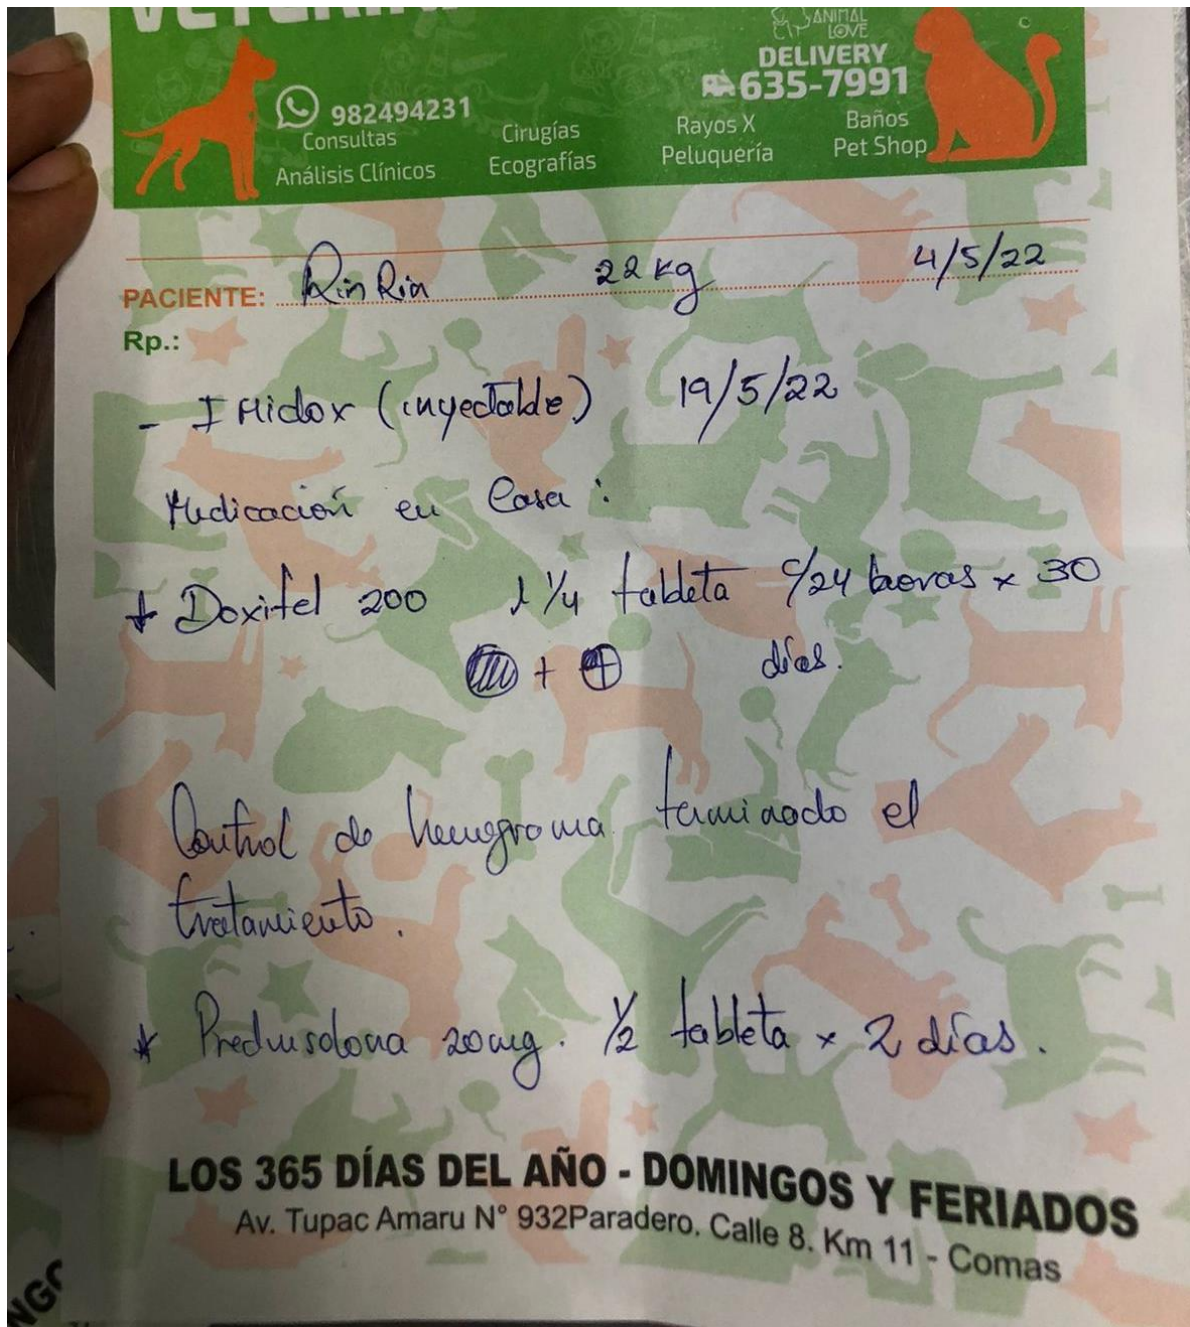 VETERINA
ANIMAL
LOVE
DELIVERY
635-7991
982494231
Consultas
Análisis Clínicos
Cirugías
Ecografías
Rayos X
Peluquería
Baños
Pet Shop
PACIENTE: Rin Rin 22 kg 4/5/22
Rp.:
- IMidox (inyectable) 19/5/22
Medicación en Casa :
Doxifel 200 1 1/4 tableta c/24 horas x 30
+ días.
Control de hemograma terminado el
tratamiento.
Prednisolona 20mg. 1/2 tableta x 2 días.
LOS 365 DÍAS DEL AÑO - DOMINGOS Y FERIADOS
Av. Tupac Amaru N° 932Paradero. Calle 8. Km 11 - Comas